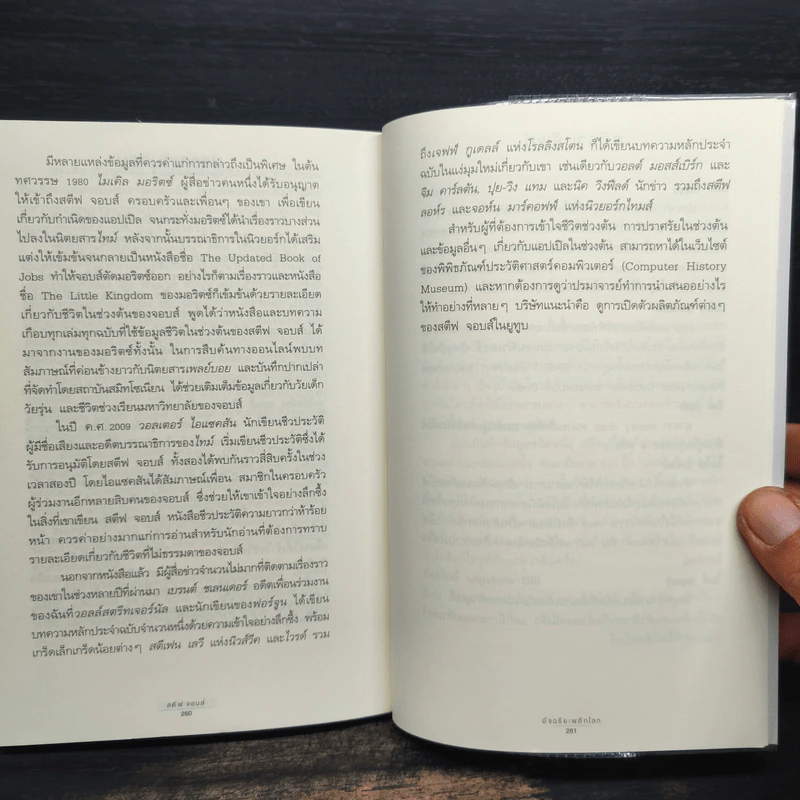 มีหลายแหล่งข้อมูลที่ควรค่าแก่การกล่าวถึงเป็นพิเศษ ในต้น
ทศวรรษ 1980 ไมเคิล มอริตซ์ ผู้สื่อข่าวคนหนึ่งได้รับอนุญาต
ให้เข้าถึงสตีฟ จอบส์ ครอบครัวและเพื่อนๆ ของเขา เพื่อเขียน
เกี่ยวกับกำเนิดของแอปเปิล จนกระทั่งมอริตซ์ได้นำเรื่องราวบางส่วน
ไปลงในนิตยสารไทม์ หลังจากนั้นบรรณาธิการในนิวยอร์กได้เสริม
แต่งให้เข้มข้นจนกลายเป็นหนังสือชื่อ The Updated Book of
Jobs ทำให้จอบส์ตัดมอริตซ์ออก อย่างไรก็ตามเรื่องราวและหนังสือ
ชื่อ The Little Kingdom ของมอริตซ์ก็เข้มข้นด้วยรายละเอียด
เกี่ยวกับชีวิตในช่วงต้นของจอบส์ พูดได้ว่าหนังสือและบทความ
เกือบทุกเล่มทุกฉบับที่ใช้ข้อมูลชีวิตในช่วงต้นของสตีฟ จอบส์ ได้
มาจากงานของมอริตซ์ทั้งนั้น ในการสืบค้นทางออนไลน์พบบท
สัมภาษณ์ที่ค่อนข้างยาวกับนิตยสารเพลย์บอย และบันทึกปากเปล่า
ที่จัดทำโดยสถาบันสมิทโซเนียน ได้ช่วยเติมเต็มข้อมูลเกี่ยวกับวัยเด็ก
วัยรุ่น และชีวิตช่วงเรียนมหาวิทยาลัยของจอบส์
ในปี ค.ศ. 2009 วอลเตอร์ ไอแซคสัน นักเขียนชีวประวัติ
ผู้มีชื่อเสียงและอดีตบรรณาธิการของไทม์ เริ่มเขียนชีวประวัติซึ่งได้
รับการอนุมัติโดยสตีฟ จอบส์ ทั้งสองได้พบกันราวสี่สิบครั้งในช่วง
เวลาสองปี โดยไอแซคสันได้สัมภาษณ์เพื่อน สมาชิกในครอบครัว
ผู้ร่วมงานอีกหลายสิบคนของจอบส์ ซึ่งช่วยให้เขาเข้าใจอย่างลึกซึ้ง
ในสิ่งที่เขาเขียน สตีฟ จอบส์ หนังสือชีวประวัติความยาวกว่าห้าร้อย
หน้า ควรค่าอย่างมากแก่การอ่านสำหรับนักอ่านที่ต้องการทราบ
รายละเอียดเกี่ยวกับชีวิตที่ไม่ธรรมดาของจอบส์
นอกจากหนังสือแล้ว มีผู้สื่อข่าวจำนวนไม่มากที่ติดตามเรื่องราว
ของเขาในช่วงหลายปีที่ผ่านมา เบรนต์ ชเลนเดอร์ อดีตเพื่อนร่วมงาน
ของฉันที่วอลล์สตรีทเจอร์นัล และนักเขียนของฟอร์จูน ได้เขียน
บทความหลักประจำฉบับจำนวนหนึ่งด้วยความเข้าใจอย่างลึกซึ้ง พร้อม
เกร็ดเล็กเกร็ดน้อยต่างๆ สตีเฟน เลวี แห่งนิวส์วีค และไวรด์ รวม
สตีฟ จอบส์
260
ถึงเจฟฟ์ กูเดลล์ แห่งโรลลิงสโตน ก็ได้เขียนบทความหลักประจำ
ฉบับในแง่มุมใหม่เกี่ยวกับเขา เช่นเดียวกับวอลต์ มอสส์เบิร์ก และ
จิม คาร์ลตัน, ปุย-วิง แทม และนิค วิงฟิลด์ นักข่าว รวมถึงสตีฟ
ลอห์ร และจอห์น มาร์คอฟฟ์ แห่งนิวยอร์กไทมส์
สำหรับผู้ที่ต้องการเข้าใจชีวิตช่วงต้น การปราศรัยในช่วงต้น
และข้อมูลอื่นๆ เกี่ยวกับแอปเปิลในช่วงต้น สามารถหาได้ในเว็บไซต์
ของพิพิธภัณฑ์ประวัติศาสตร์คอมพิวเตอร์ (Computer History
Museum) และหากต้องการดูว่าปรมาจารย์ทำการนำเสนออย่างไร
ให้ทำอย่างที่หลายๆ บริษัทแนะนำคือ ดูการเปิดตัวผลิตภัณฑ์ต่างๆ
ของสตีฟ จอบส์ในยูทูบ
อัจฉริยะพลิกโลก
261